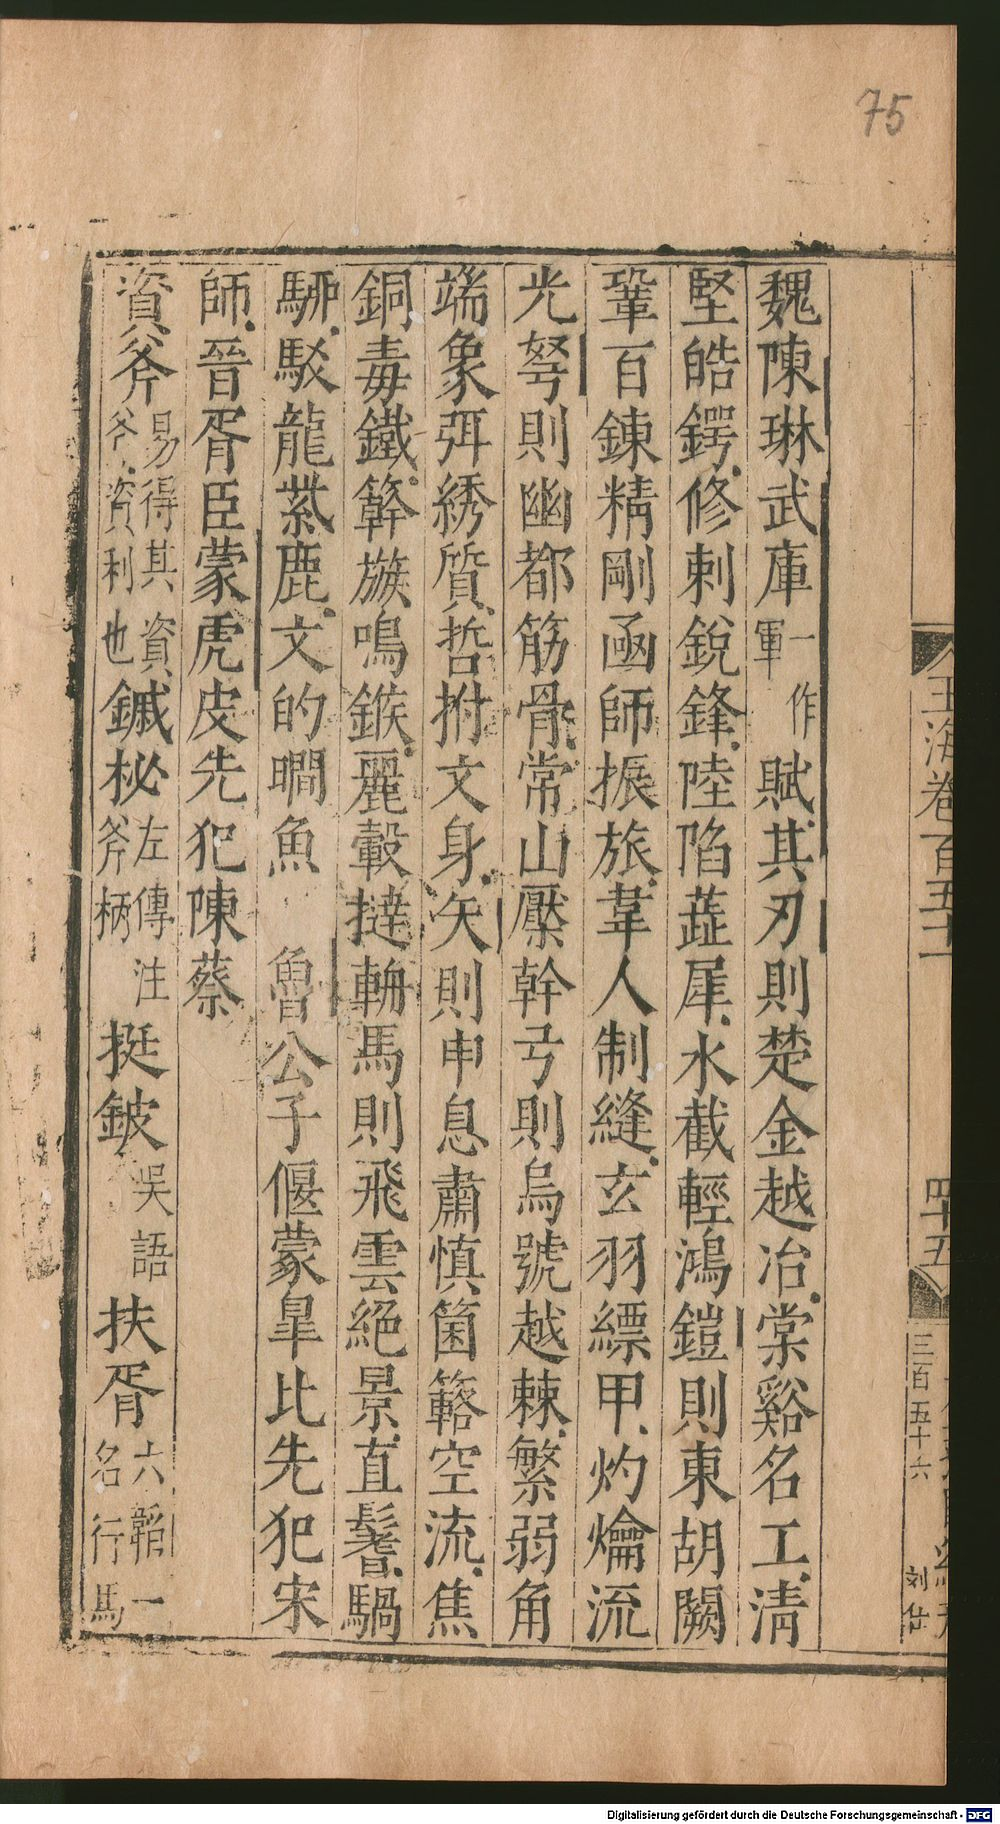 75
魏陳琳武庫一作軍賦其刃則楚金越冶棠谿名工清
堅皓鍔修刺銳鋒陸陷蕋犀水截輕鴻鎧則東胡闕
鞏百鍊精剛函師振旅韋人制縫玄羽縹甲灼爚流
光弩則幽都筋骨常山壓幹弓則烏號越棘繁弱角
端象弭綉質晢拊文身矢則申息肅慎箘簵空流焦
銅毒鐵簳鏃鳴鍭麗轂撻輈馬則飛雲絕景直鬐騧
駵駁龍紫鹿文的瞷魚 魯公子偃蒙臯比先犯宋
師晉胥臣蒙虎皮先犯陳蔡
資斧易得其資斧資利也鏚柲左傳注斧柄挺鈹吳語扶胥六韜一名行馬
玉海卷百五十一
四十五
三百五十六
刘仕
Digitalisierung gefördert durch die Deutsche Forschungsgemeinschaft - DFG